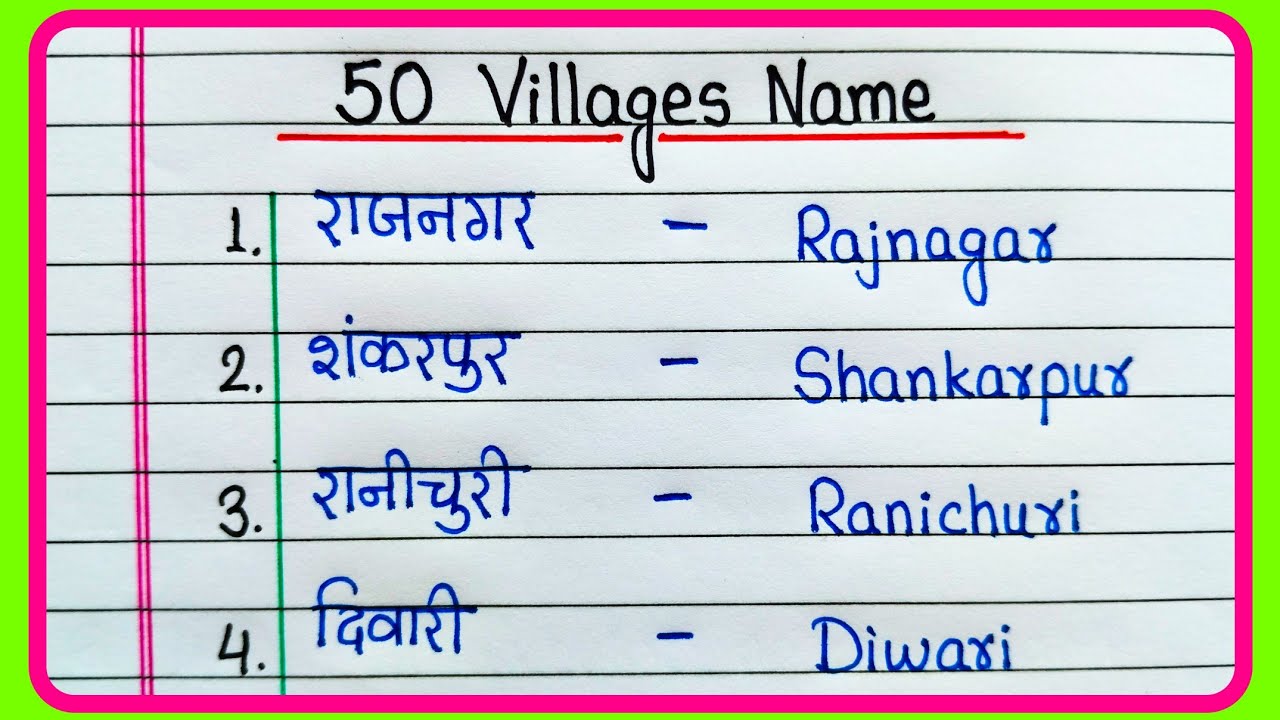 50 Villages Name
1. राजनगर - Rajnagar
2. शंकरपुर - Shankarpur
3. रानीचुरी - Ranichuri
4. दिवारी - Diwari